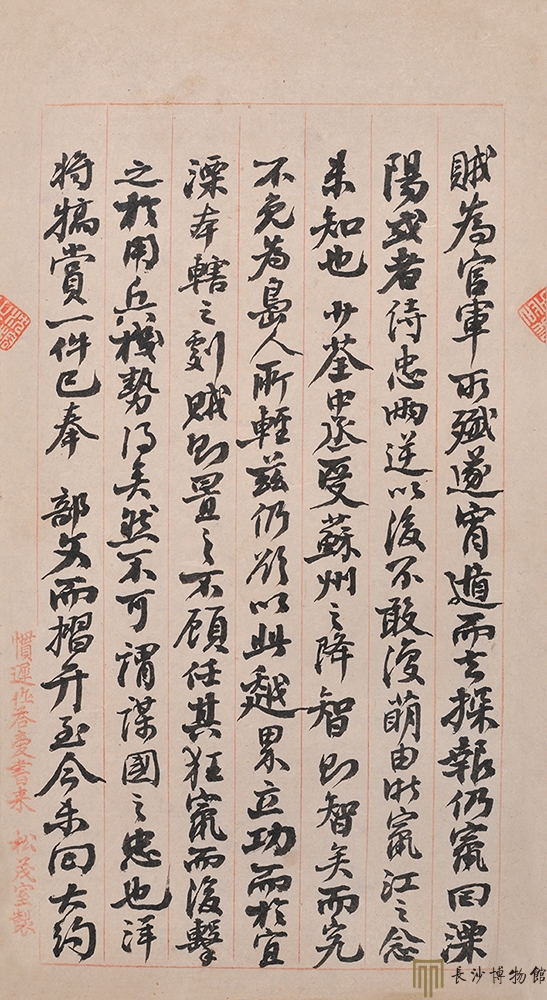 賊為官軍所殲遂宵遁而去探報仍竄回溧
陽或者侍忠兩逆以後不敢復萌由浙竄江之念
未知也少荃中丞受蘇州之降智則智矣而究
不免為島人所輕茲仍欲以此趨累立功而於宜
溧本轄之劇賊則置之不顧任其狂竄而後擊
之於用兵機勢得矣然不可謂謀國之忠也洋
將犒賞一件已奉 部文而摺弁至今未回大約
慣遲作答愛書來 松茂室製
長沙博物館